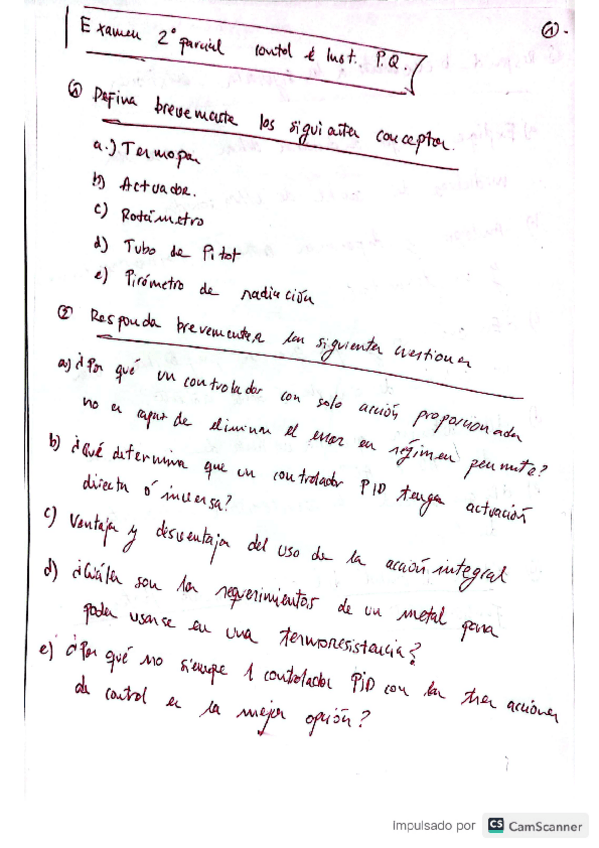 Examen 2º parcial control é Inst. P.Q.
①.
① Defina brevemente los siguientes conceptos.
a.) Termopar
b) Actuador.
c) Rotámetro
d) Tubo de Pitot
e) Pirómetro de radiación
② Responda brevemente a las siguientes cuestiones
a) ¿Por qué un controlador con solo acción proporcionada
no es capaz de eliminar el error en régimen permnte?
b) ¿Qué determina que un controlador PID tenga actuación
directa ó inversa?
c) Ventajas y desventajas del uso de la acción integral
d) ¿Cuáles son los requerimientos de un metal para
poder usarse en una termoresistencia?
e) ¿Por qué no siempre 1 controlador PiD con las tres acciones
de control es la mejor opción?
Impulsado por CS CamScanner